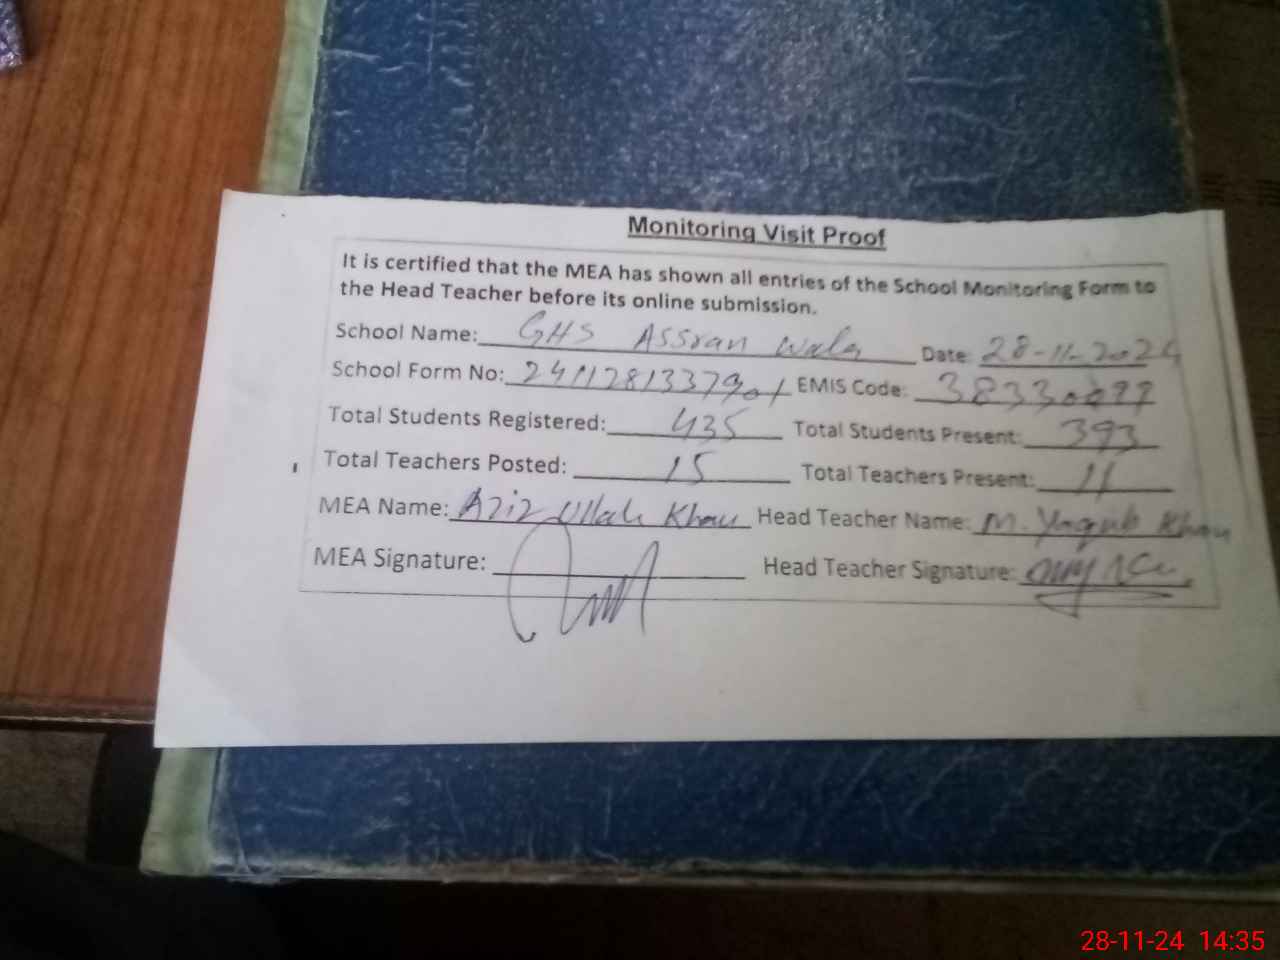 Monitoring Visit Proof
It is certified that the MEA has shown all entries of the School Monitoring Form to
the Head Teacher before its online submission.
School Name: GHS Assran Wala Date: 28-11-2024
School Form No: EMIS Code:
Total Students Registered: 435 Total Students Present: 393
Total Teachers Posted: 15 Total Teachers Present: 11
MEA Name: Aziz Ullah Khan Head Teacher Name: M. Yaqub Khan
MEA Signature: Head Teacher Signature:
28-11-24 14:35